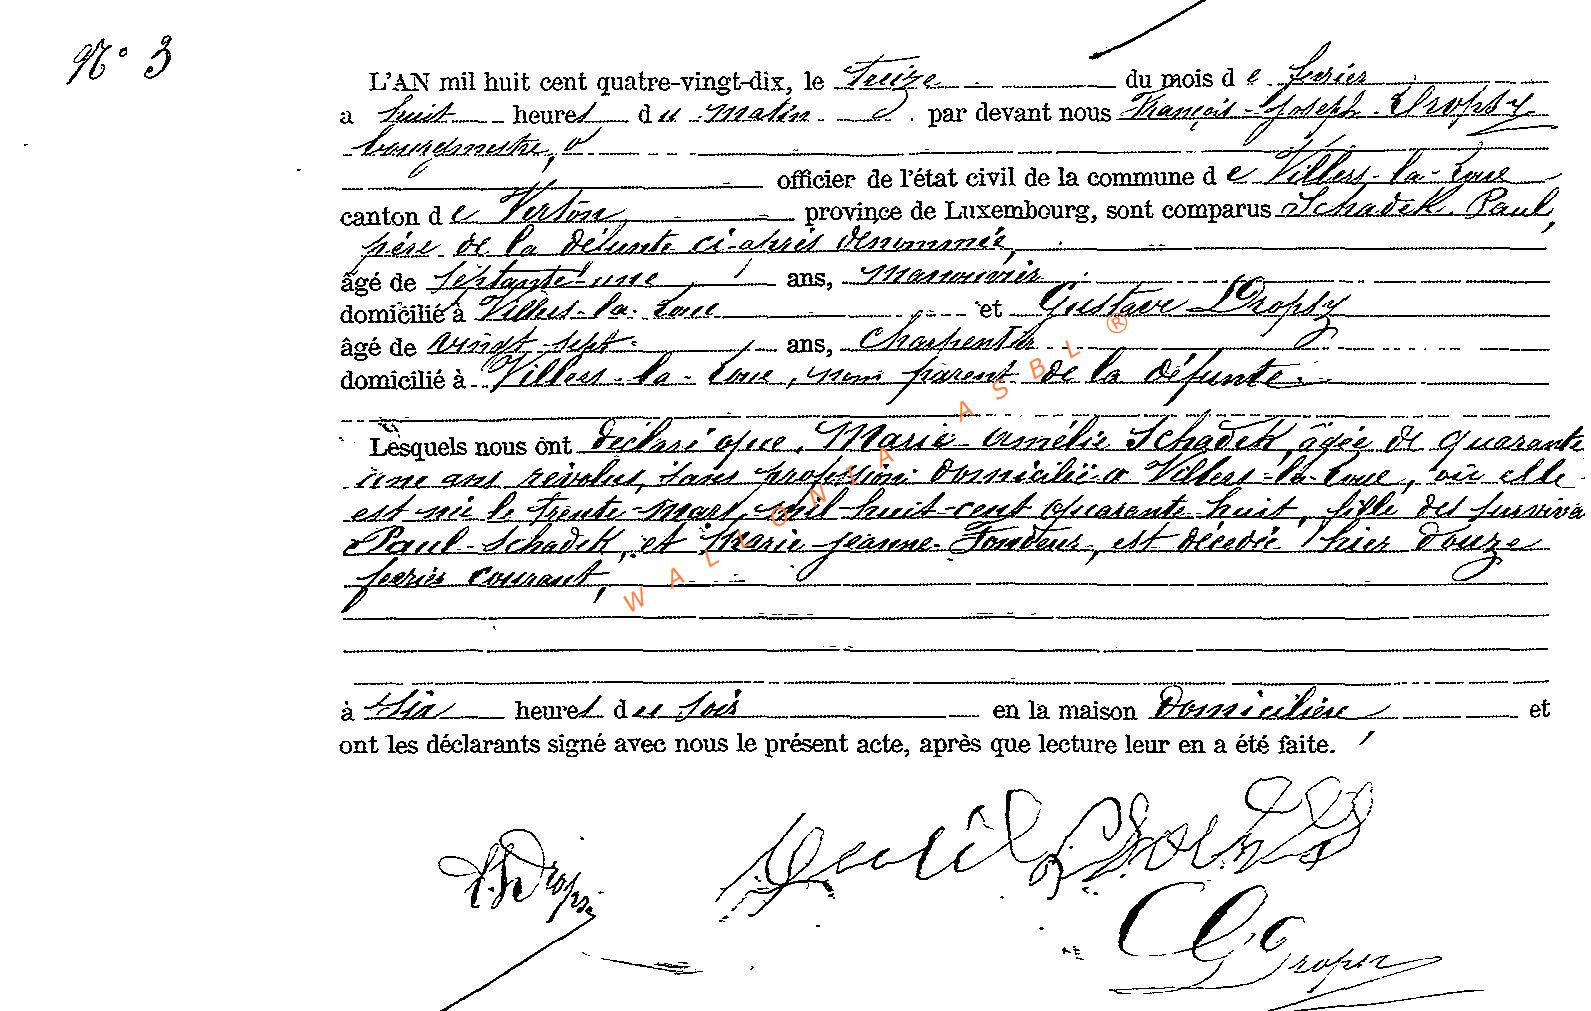 N° 3
L'AN mil huit cent quatre-vingt-dix, le Treize du mois d e fevrier
a huit heures du Matin par devant nous François-Joseph Dropsy
bourgmestre,
officier de l'état civil de la commune d e Villers-la-Loue
canton d e Virton province de Luxembourg, sont comparus Schadek Paul,
père de la défunte ci-après dénommée,
âgé de septante-une ans, manouvrier
domicilié à Villers-la-Loue et Gustave Dropsy
âgé de vingt sept ans, Charpentier
domicilié à Villers-la-Loue, non parent de la défunte.
Lesquels nous ont déclaré que Marie-Amélie Schadek, âgée de quarante
une ans révolus, sans profession domiciliée à Villers-la-Loue, où elle
est née le trente Mars, mil huit-cent quarante huit, fille des surviva
Paul-Schadek, et Marie-Jeanne-Fondeur, est décédée hier douze
fevrier courant,
à six heures du soir en la maison Domicilière et
ont les déclarants signé avec nous le présent acte, après que lecture leur en a été faite.
Dropsy
G Dropsy
WALLONIA ASBL ®